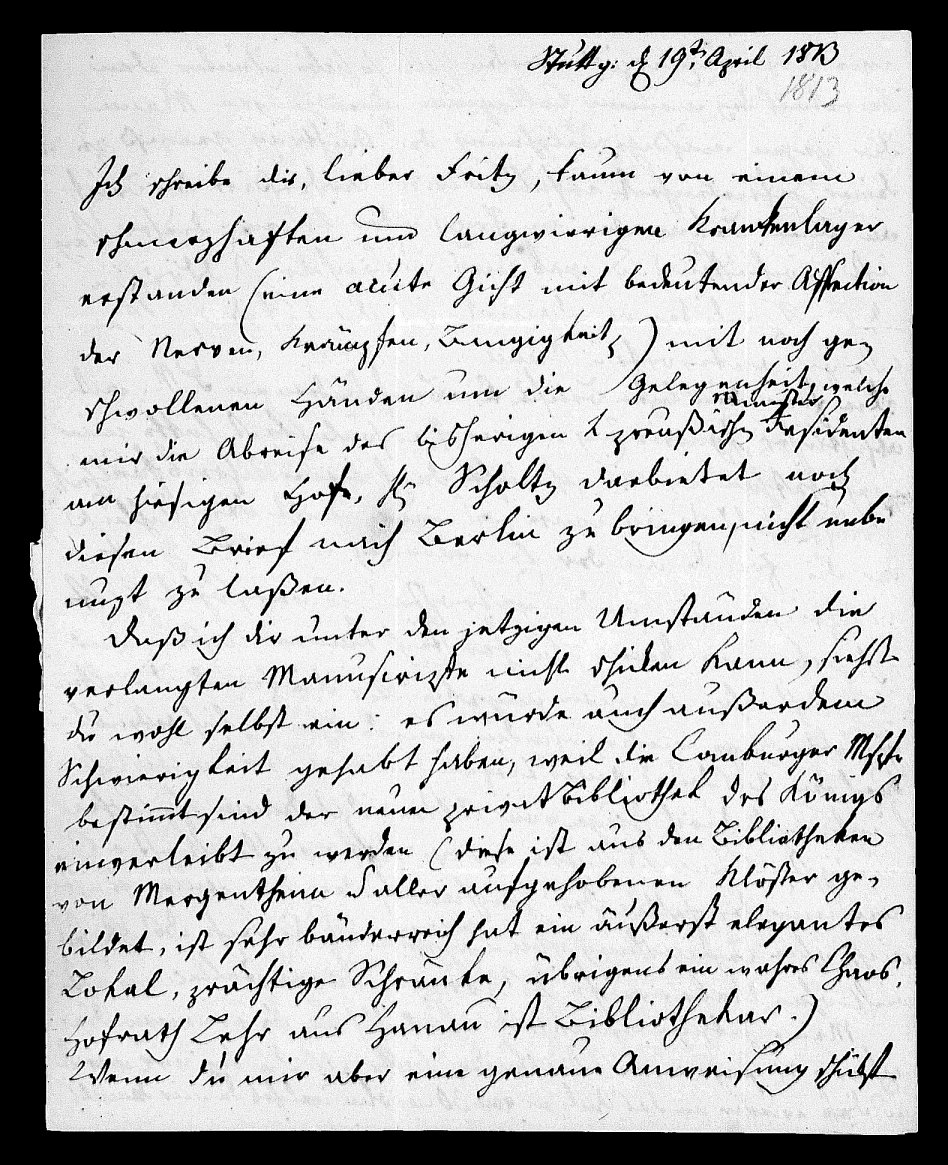 Stuttg: d 19t. April 1813
1813
Ich schreibe dir, lieber Fritz, kaum von einem
schmerzhaften und langwierigen Krankenlager
erstanden (eine acute Gicht mit bedeutender Affection
der Nerven, Krämpfen, Bangigkeit) mit noch ge-
schwollenen Händen um die Gelegenheit, welche
mir die Abreise des bisherigen k preußischen Residenten
am hiesigen Hofe, H. Scholtz darbietet noch
diesen Brief nach Berlin zu bringen, nicht unbe
nuzt zu laßen.
Daß ich dir unter den jetzigen Umständen die
verlangten Manuscripte nicht schicken kann, siehst
du wohl selbst ein: es würde auch außerdem
Schwierigkeit gehabt haben, weil die Comburger Mspte
bestimmt sind der neuen privat Bibliothek des Königs
einverleibt zu werden (diese ist aus den Bibliotheken
von Mergentheim aller aufgehobenen Klöster ge-
bildet, ist sehr bänderreich hat ein äußerst elegantes
Lokal, prächtige Schränke, übrigens ein wahres Chaos.
Hofrath Lehr aus Hanau ist Bibliothekar.)
Wenn du mir aber eine genaue Anweisung schickst